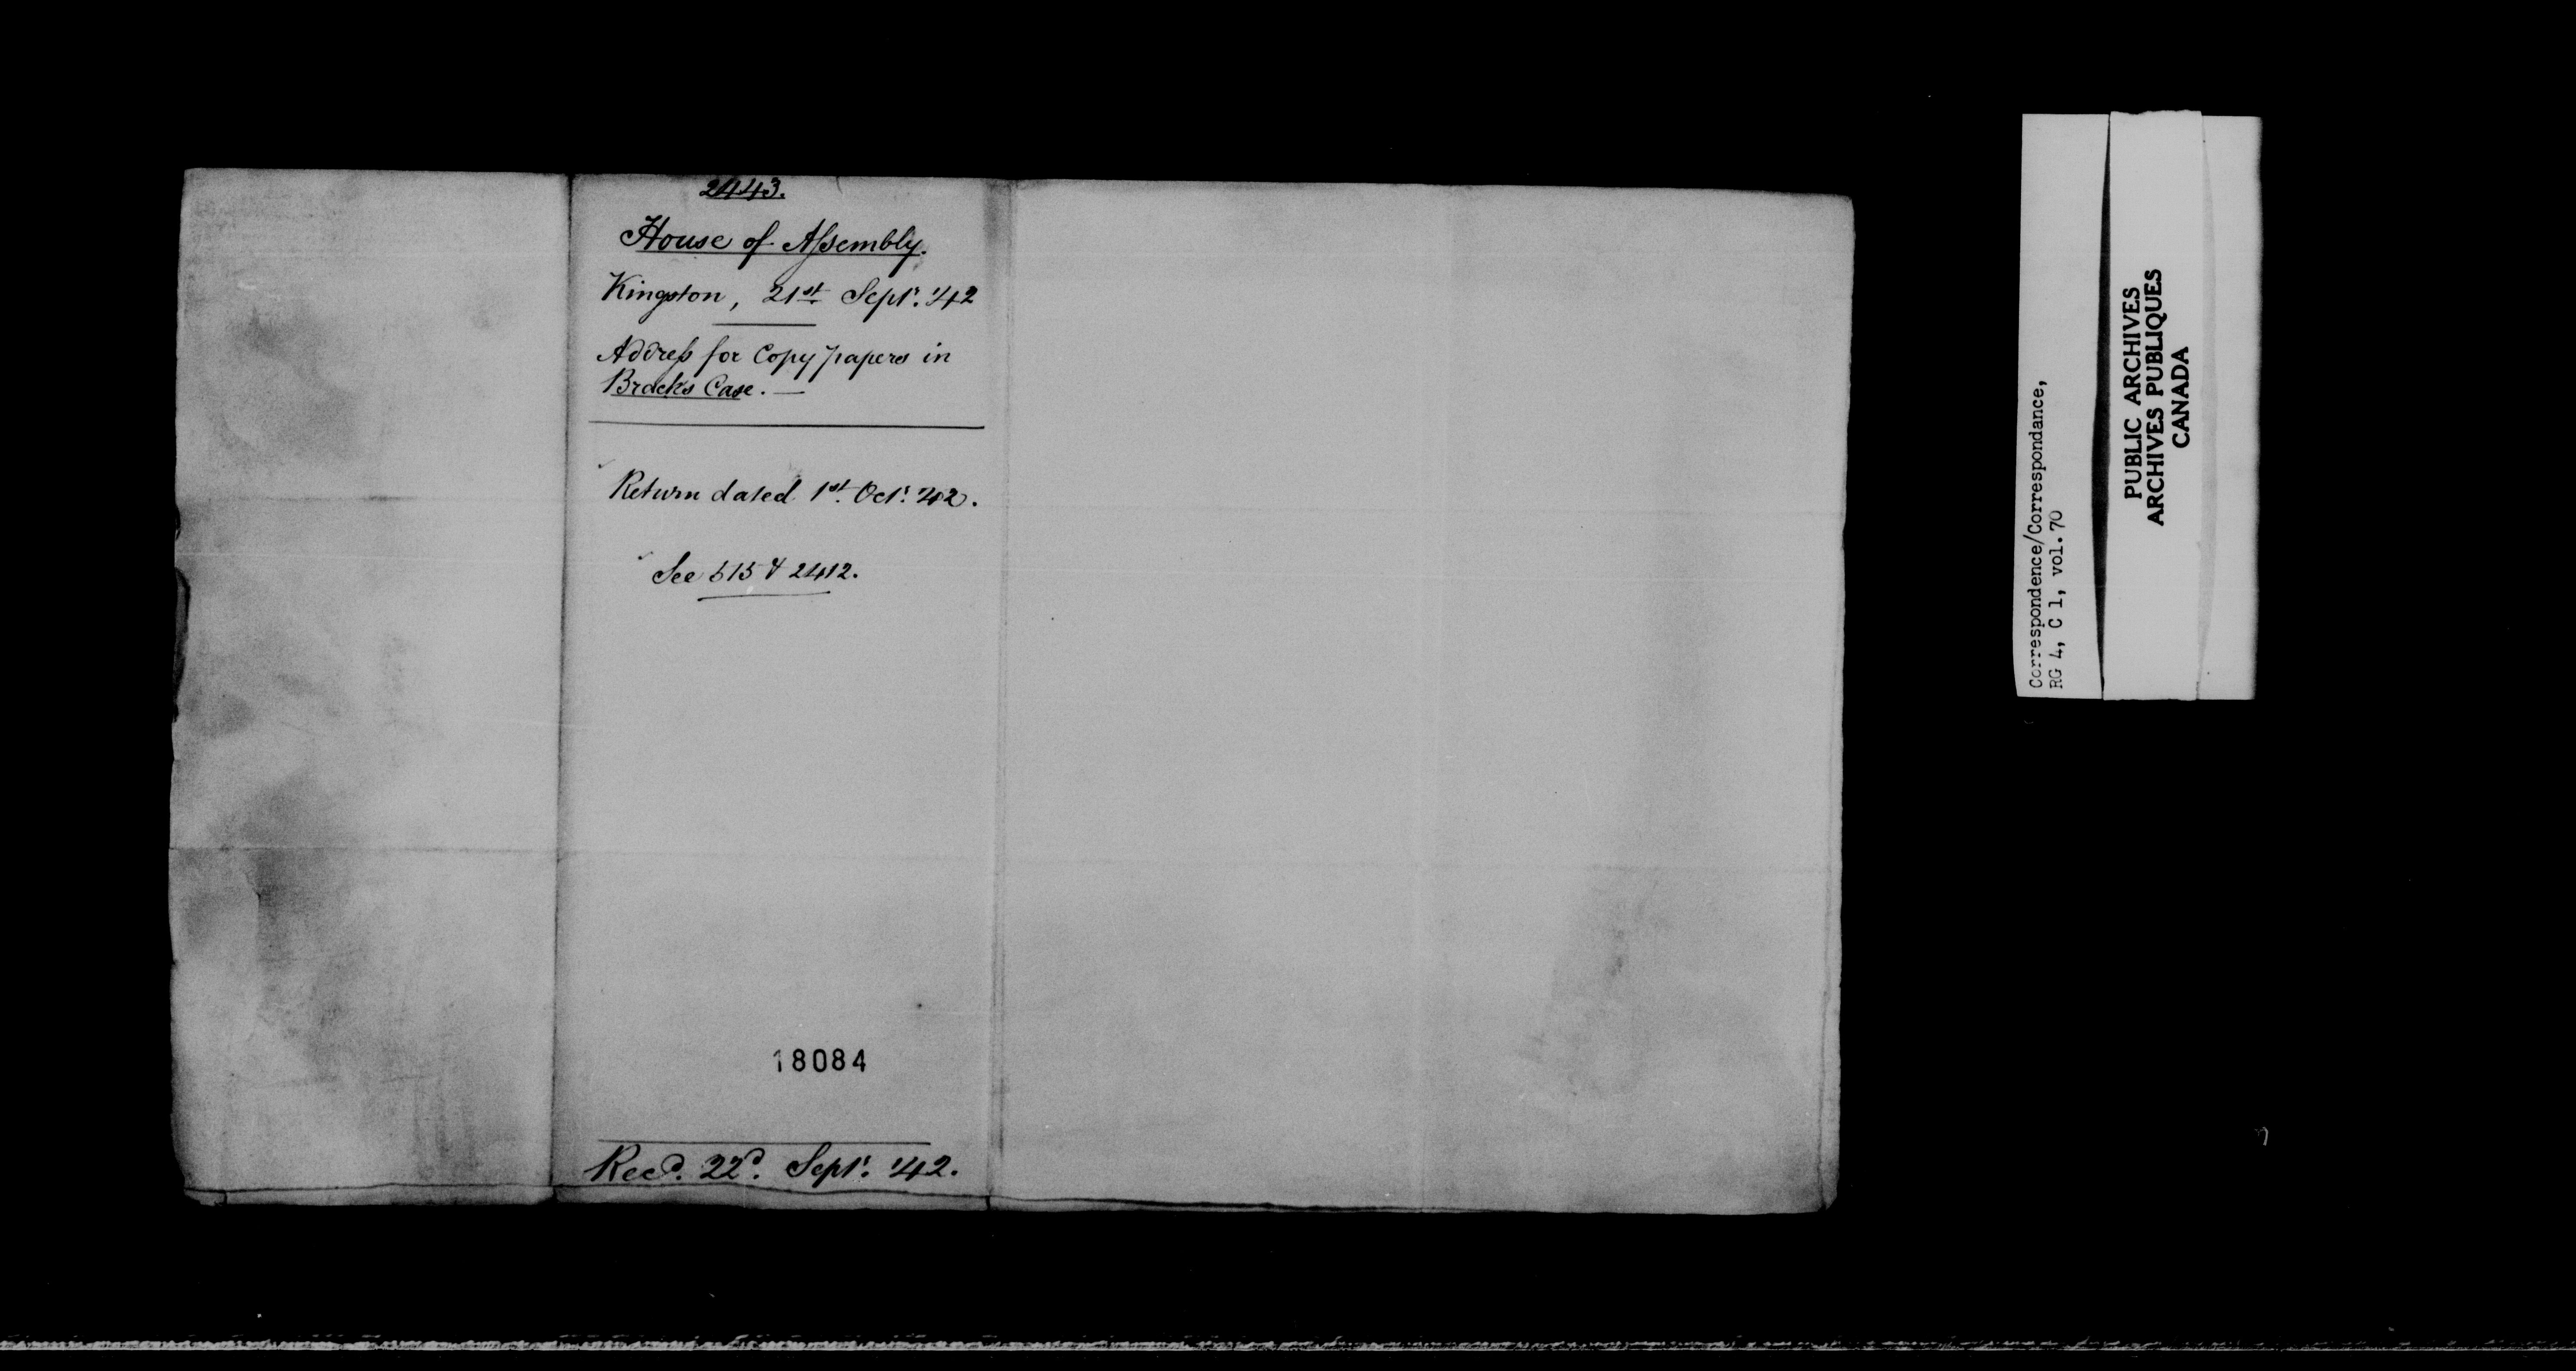 2443.
House of Assembly.
Kingston, 21st Septr. '42
Address for Copy papers in
Brack's Case. —
Return dated 1st. Octr. '42.
See 515 & 2412.
18084
Recd. 22d. Septr. '42.
Correspondence/Correspondance,
RG 4, C 1, vol. 70
PUBLIC ARCHIVES
ARCHIVES PUBLIQUES
CANADA